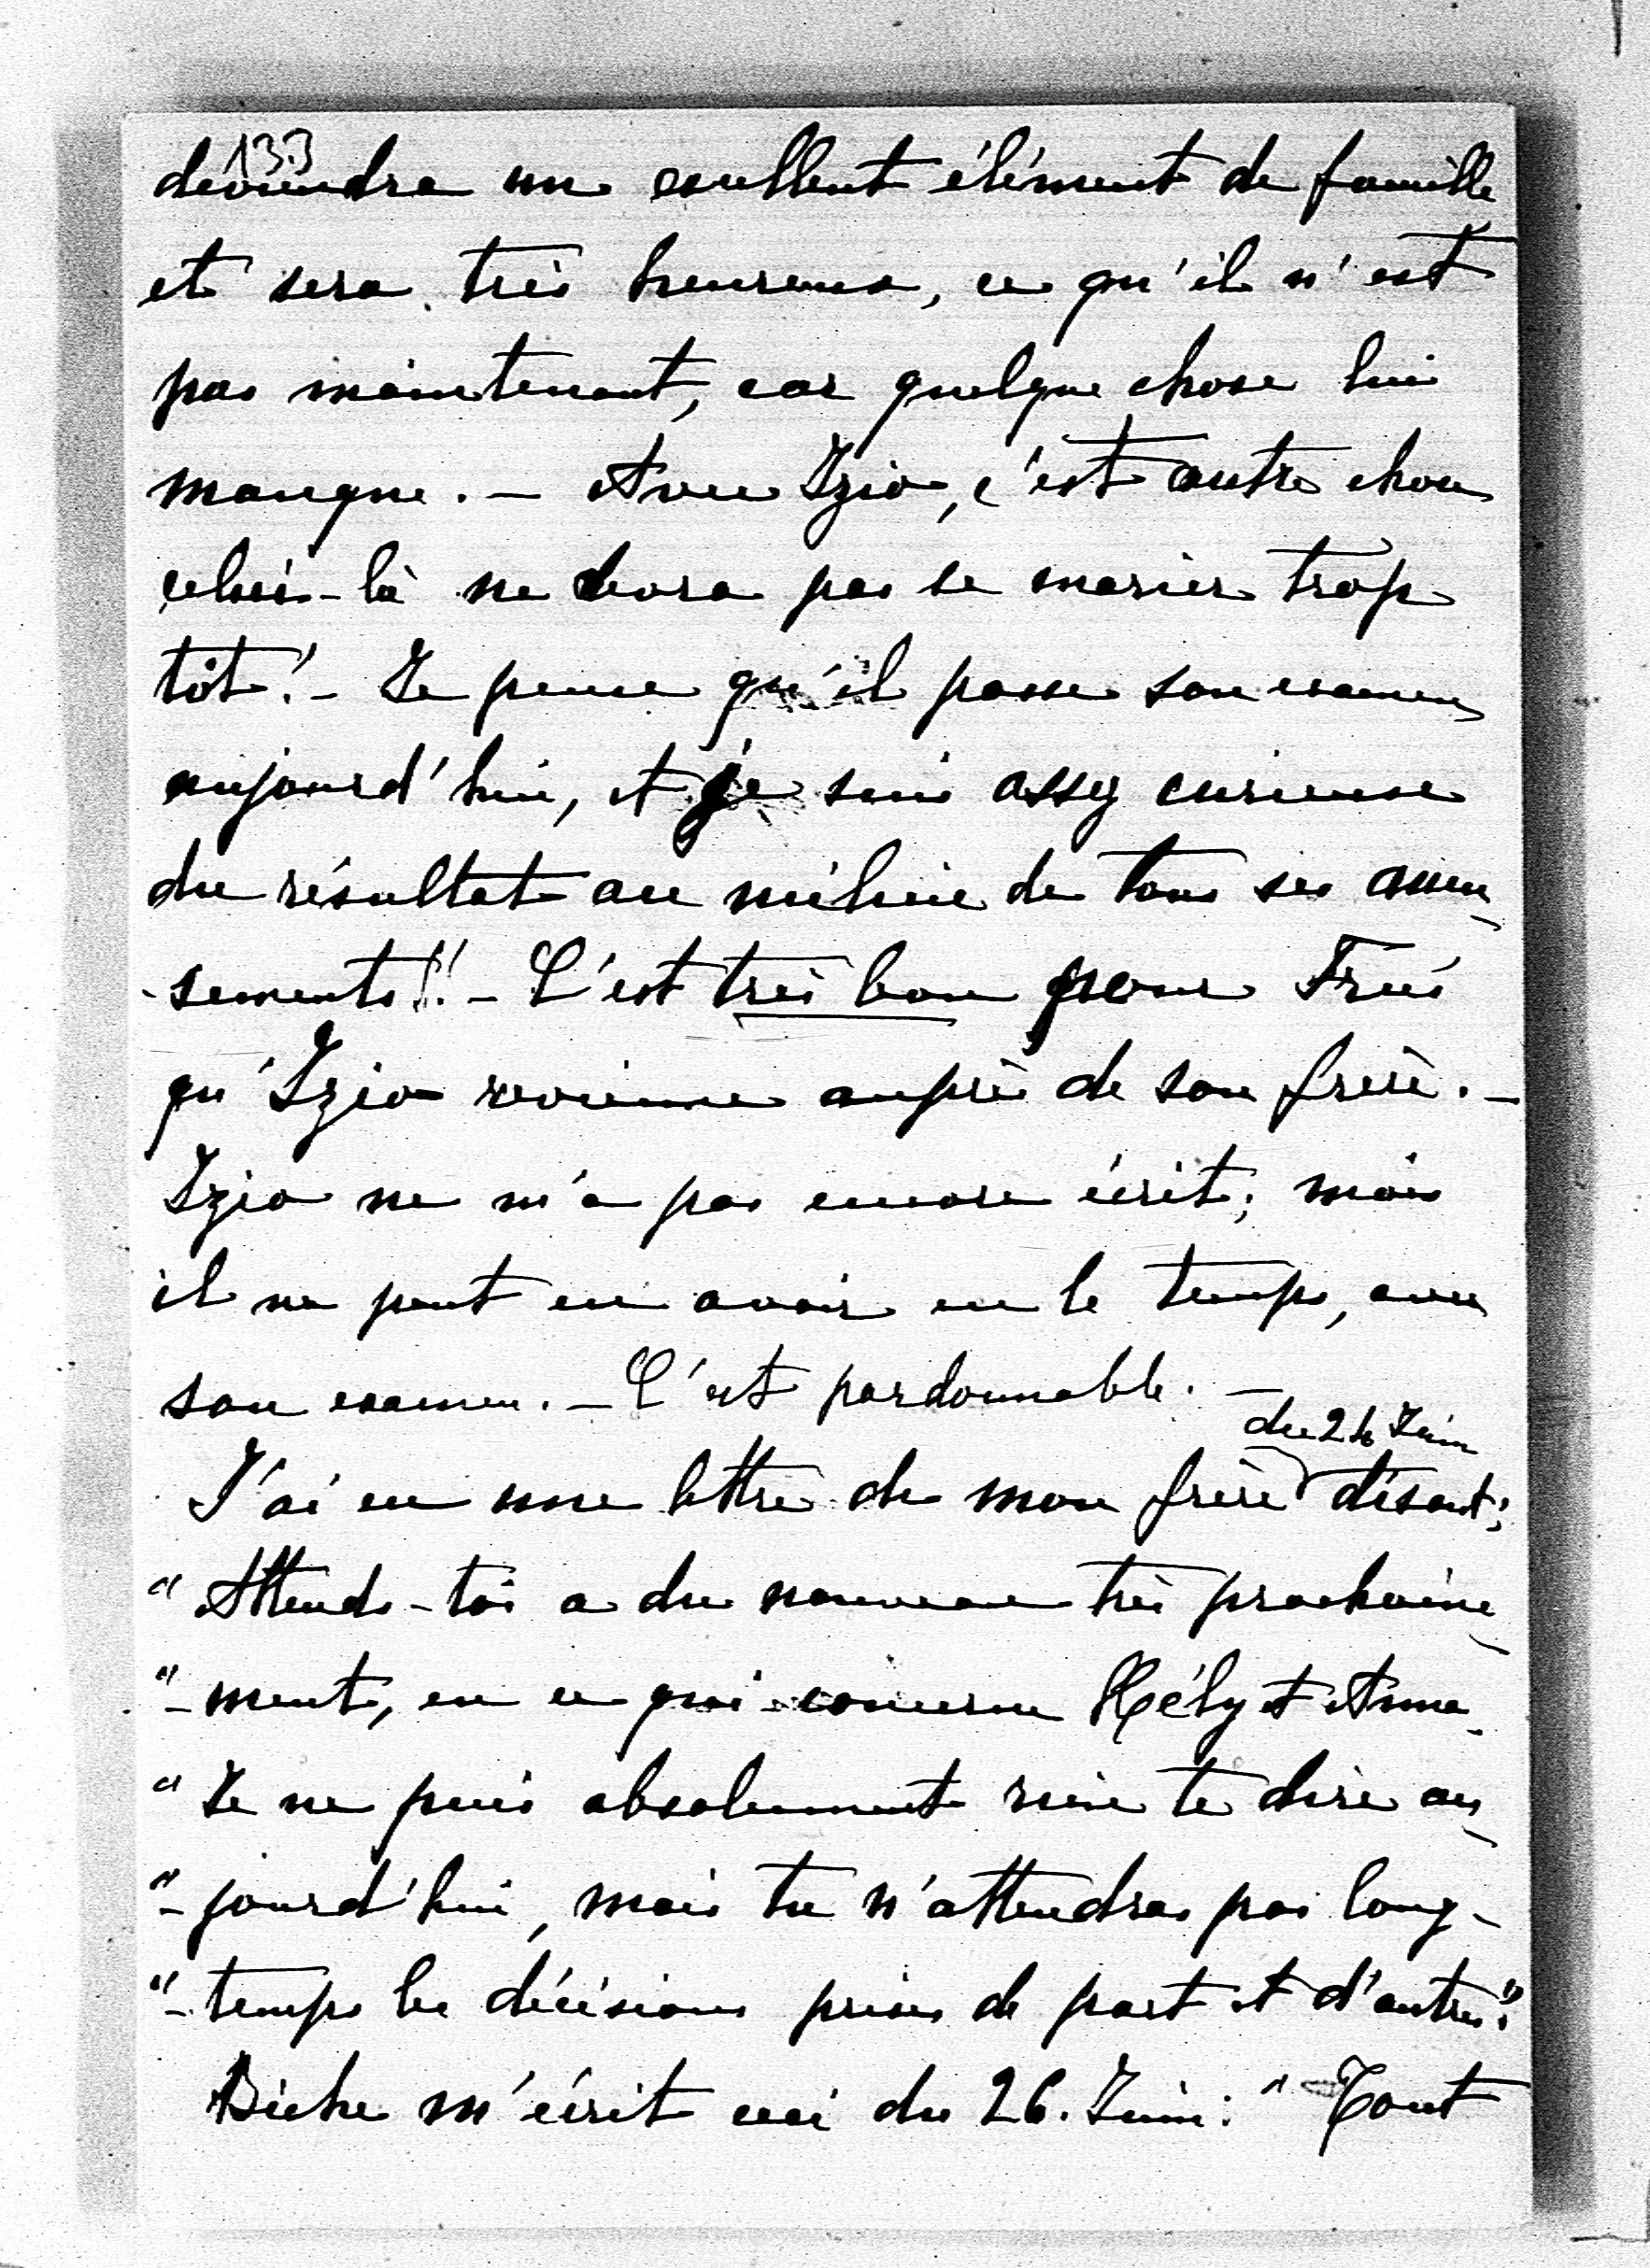 133
deviendra un excellent élément de famille
et sera très heureux, ce qu'il n'est
pas maintenant, car quelque chose lui
manque. — Avec Izio, c'est autre chose
celui-là ne devra pas se marier trop
tôt! – Je pense qu'il passe son examen
aujourd'hui, et je suis assez curieuse
du résultat au milieu de tous ses amu-
-sements!! – C'est très bon pour
qu'Izio revienne auprès de son frère. –
Izio ne m'a pas encore écrit; mais
il ne peut en avoir eu le temps, avec
son examen. – C'est pardonnable. –
du 24 Juin
J'ai eu une lettre de mon frère disant:
"Attends-toi a du nouveau très prochaine-
"-ment, en ce qui concerne Hély et Anna.
"Je ne puis absolument rien te dire au-
"-jourd'hui, mais tu n'attendras pas long-
"-temps les décisions prises de part et d'autres."
Biche m'écrit ceci du 26. Juin: "Tout